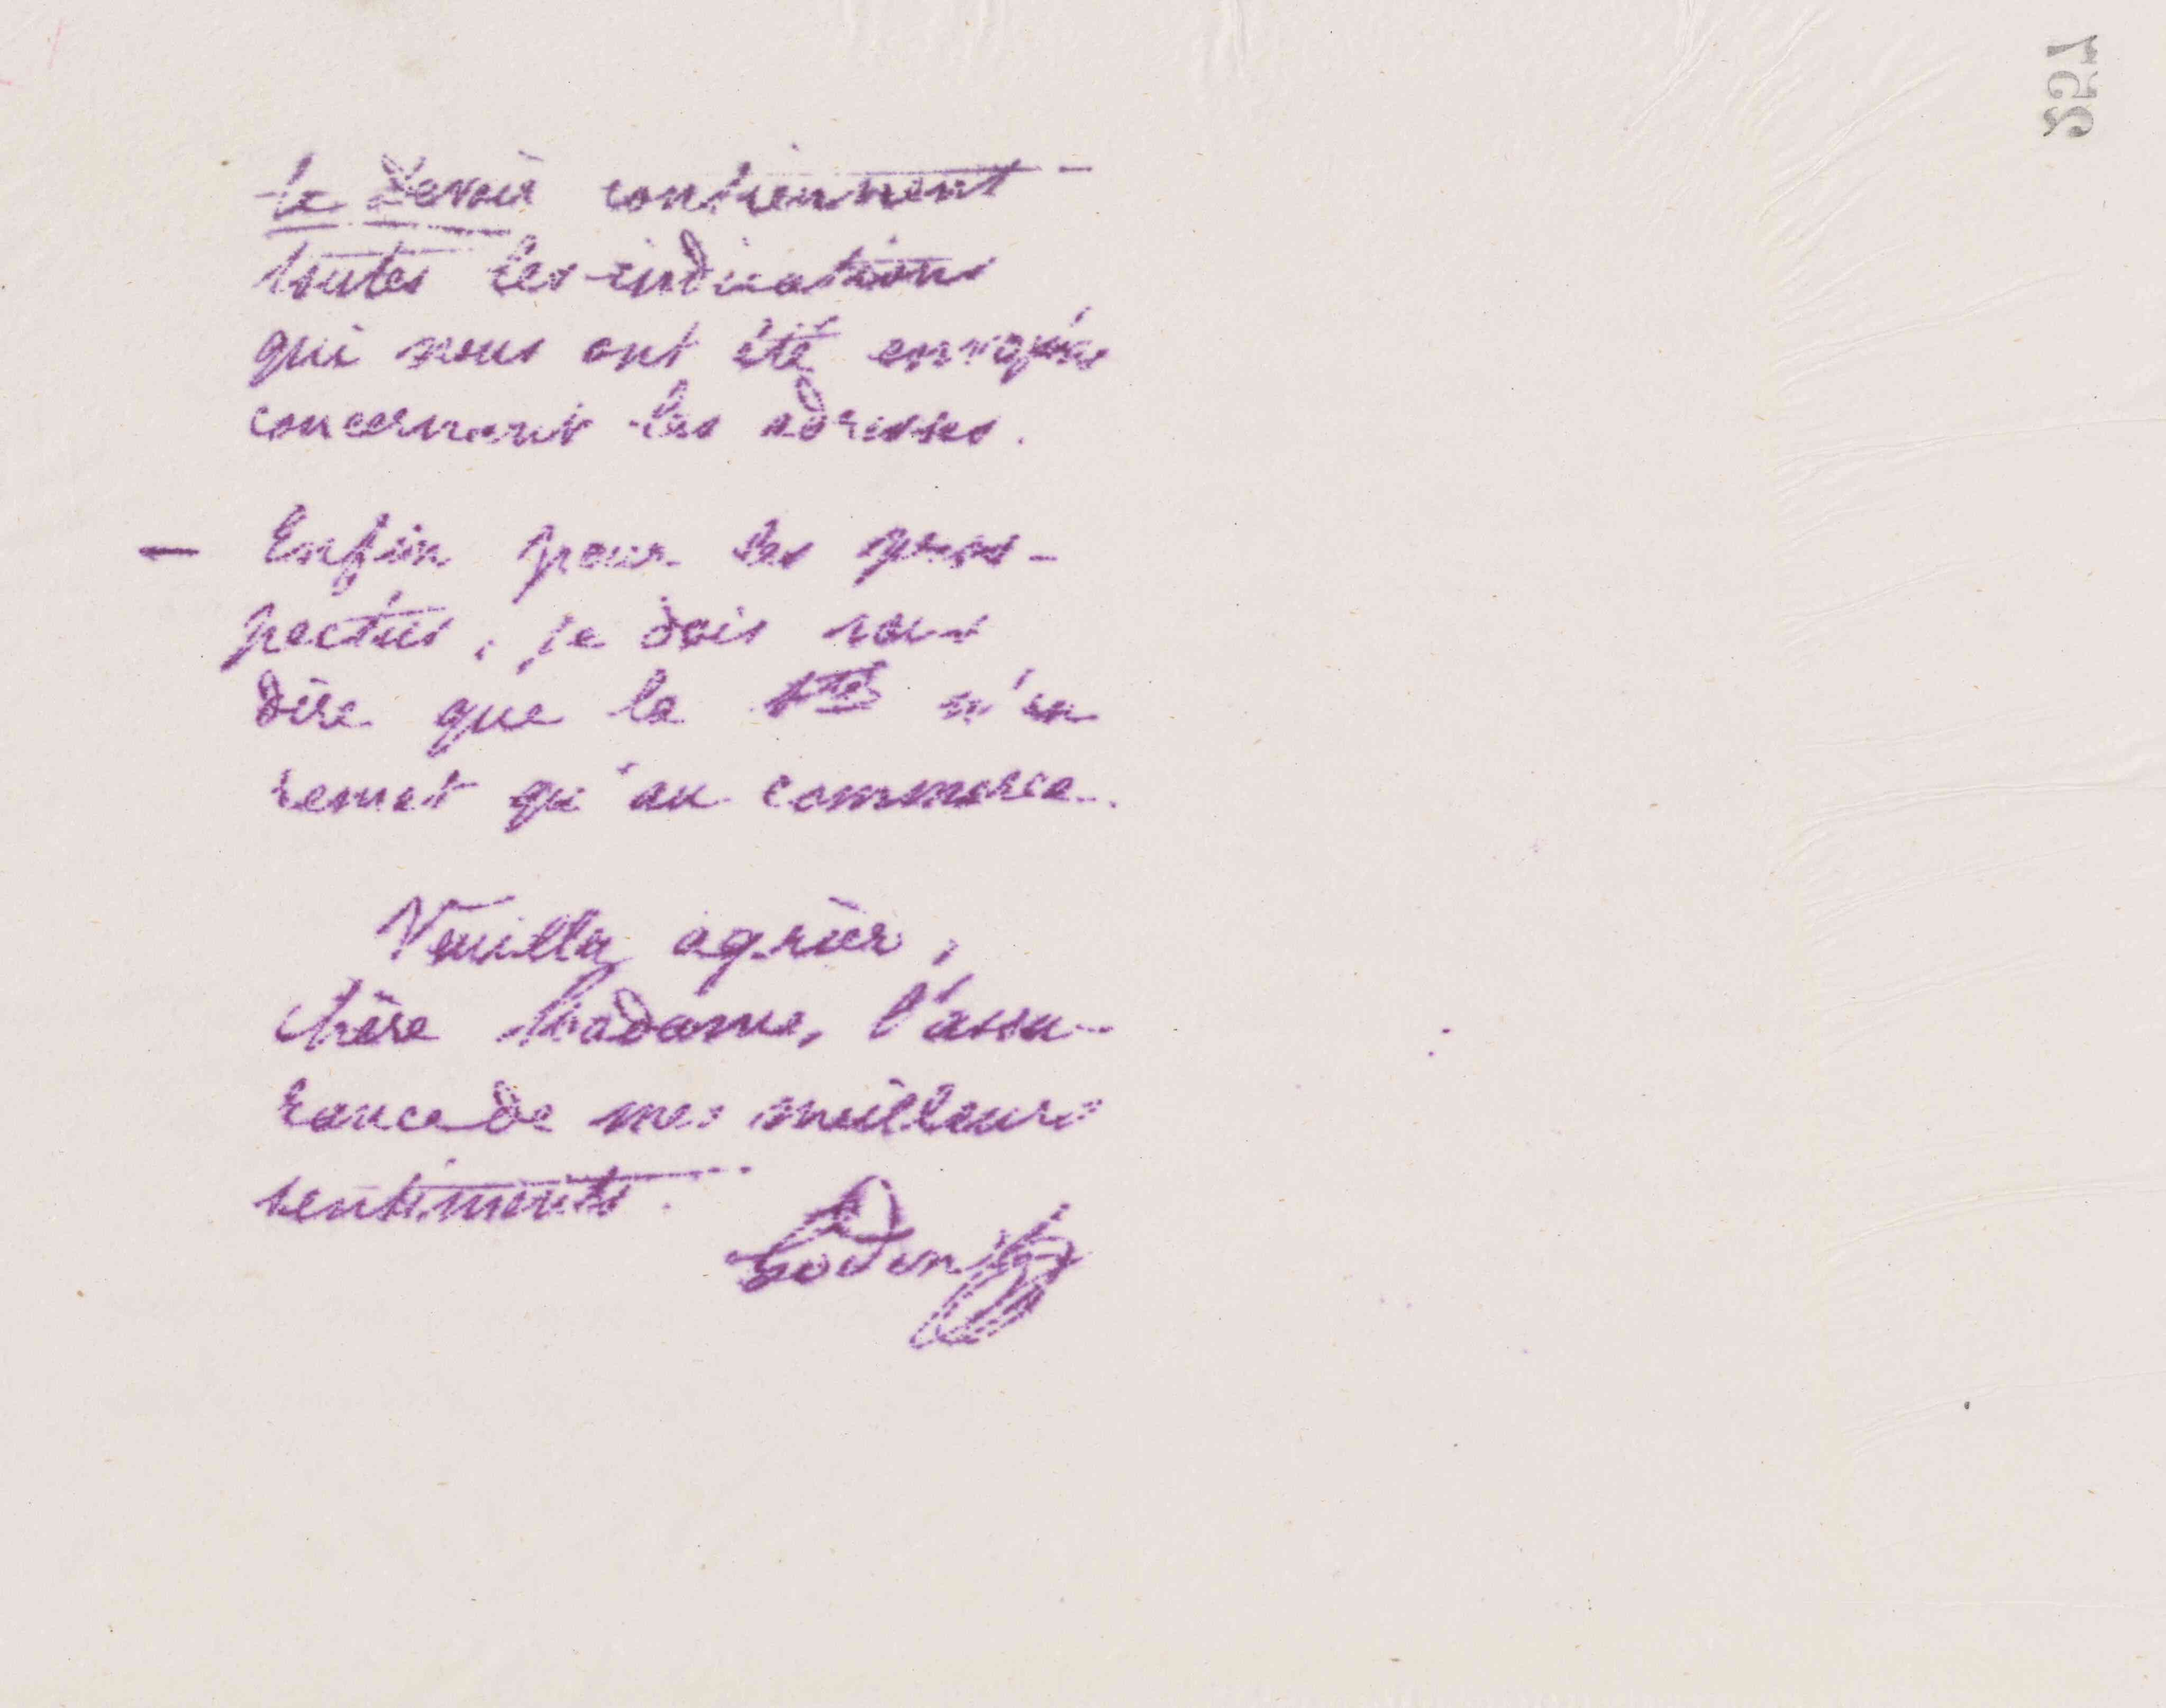 257
le Devoir contiennent
toutes les indications
qui nous ont été envoyées
concernant les adresses.
— Enfin pour les pros-
pectus, je dois vous
dire que la Sté n'en
remet qu'au commerce.
Veuillez agréer,
chère Madame, l'assu-
rance de mes meilleurs
sentiments.
Godin